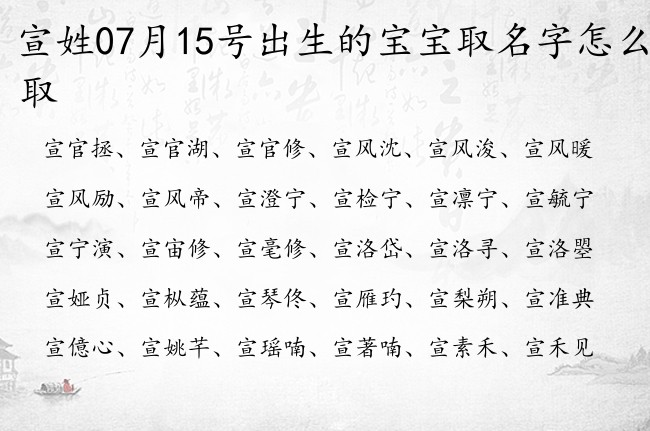 宣姓07月15号出生的宝宝取名字怎么
取
宣官拯、宣官湖、宣官修、宣风沈、宣风浚、宣风暖
宣风励、宣风帝、宣澄宁、宣检宁、宣凛宁、宣毓宁
宣宁演、宣宙修、宣毫修、宣洛岱、宣洛寻、宣洛曌
宣娅贞、宣枞蕴、宣琴佟、宣雁玓、宣梨朔、宣准典
宣億心、宣姚芊、宣瑶喃、宣著喃、宣素禾、宣禾见